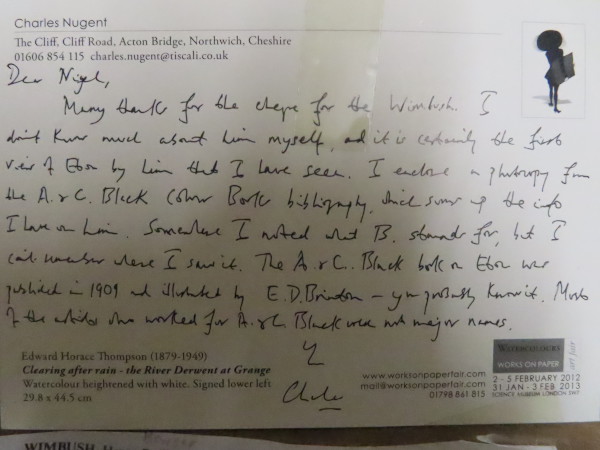 Charles Nugent
The Cliff, Cliff Road, Acton Bridge, Northwich, Cheshire
01606 854 115 charles.nugent@tiscali.co.uk
Dear Nigel,
Many thanks for the cheque for the Wimbush. I
don't know much about him myself, and it is certainly the first
view of Eton by him that I have seen. I enclose a photocopy from
the A. & C. Black Colour Books bibliography, which sums up the info
I have on him. Somewhere I noted what B. stands for, but I
can't remember where I saw it. The A. & C. Black book on Eton was
published in 1909 and illustrated by E.D. Brinton - you probably know it. Most
of the artists who worked for A. & C. Black were not major names.
Charles
Edward Horace Thompson (1879-1949)
Clearing after rain - the River Derwent at Grange
Watercolour heightened with white. Signed lower left
29.8 x 44.5 cm
www.worksonpaperfair.com
mail@worksonpaperfair.com
01798 861 815
WATERCOLOURS
WORKS ON PAPER
2 - 5 FEBRUARY 2012
31 JAN - 3 FEB 2013
SCIENCE MUSEUM LONDON SW7
WIMBUSH